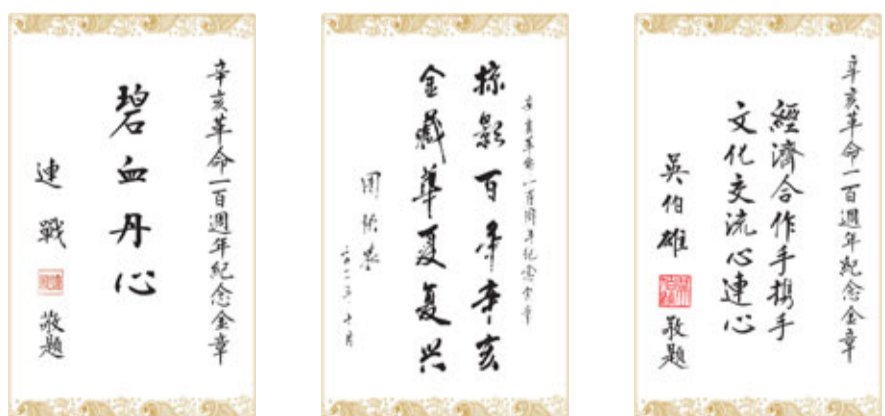 辛亥革命一百週年紀念金章
碧血丹心
連戰
敬題
辛亥革命一百周年纪念金章
掠影百年辛亥
金藏华夏复兴
二〇一一年十月
辛亥革命一百週年紀念金章
經濟合作手攜手
文化交流心連心
吳伯雄
敬題